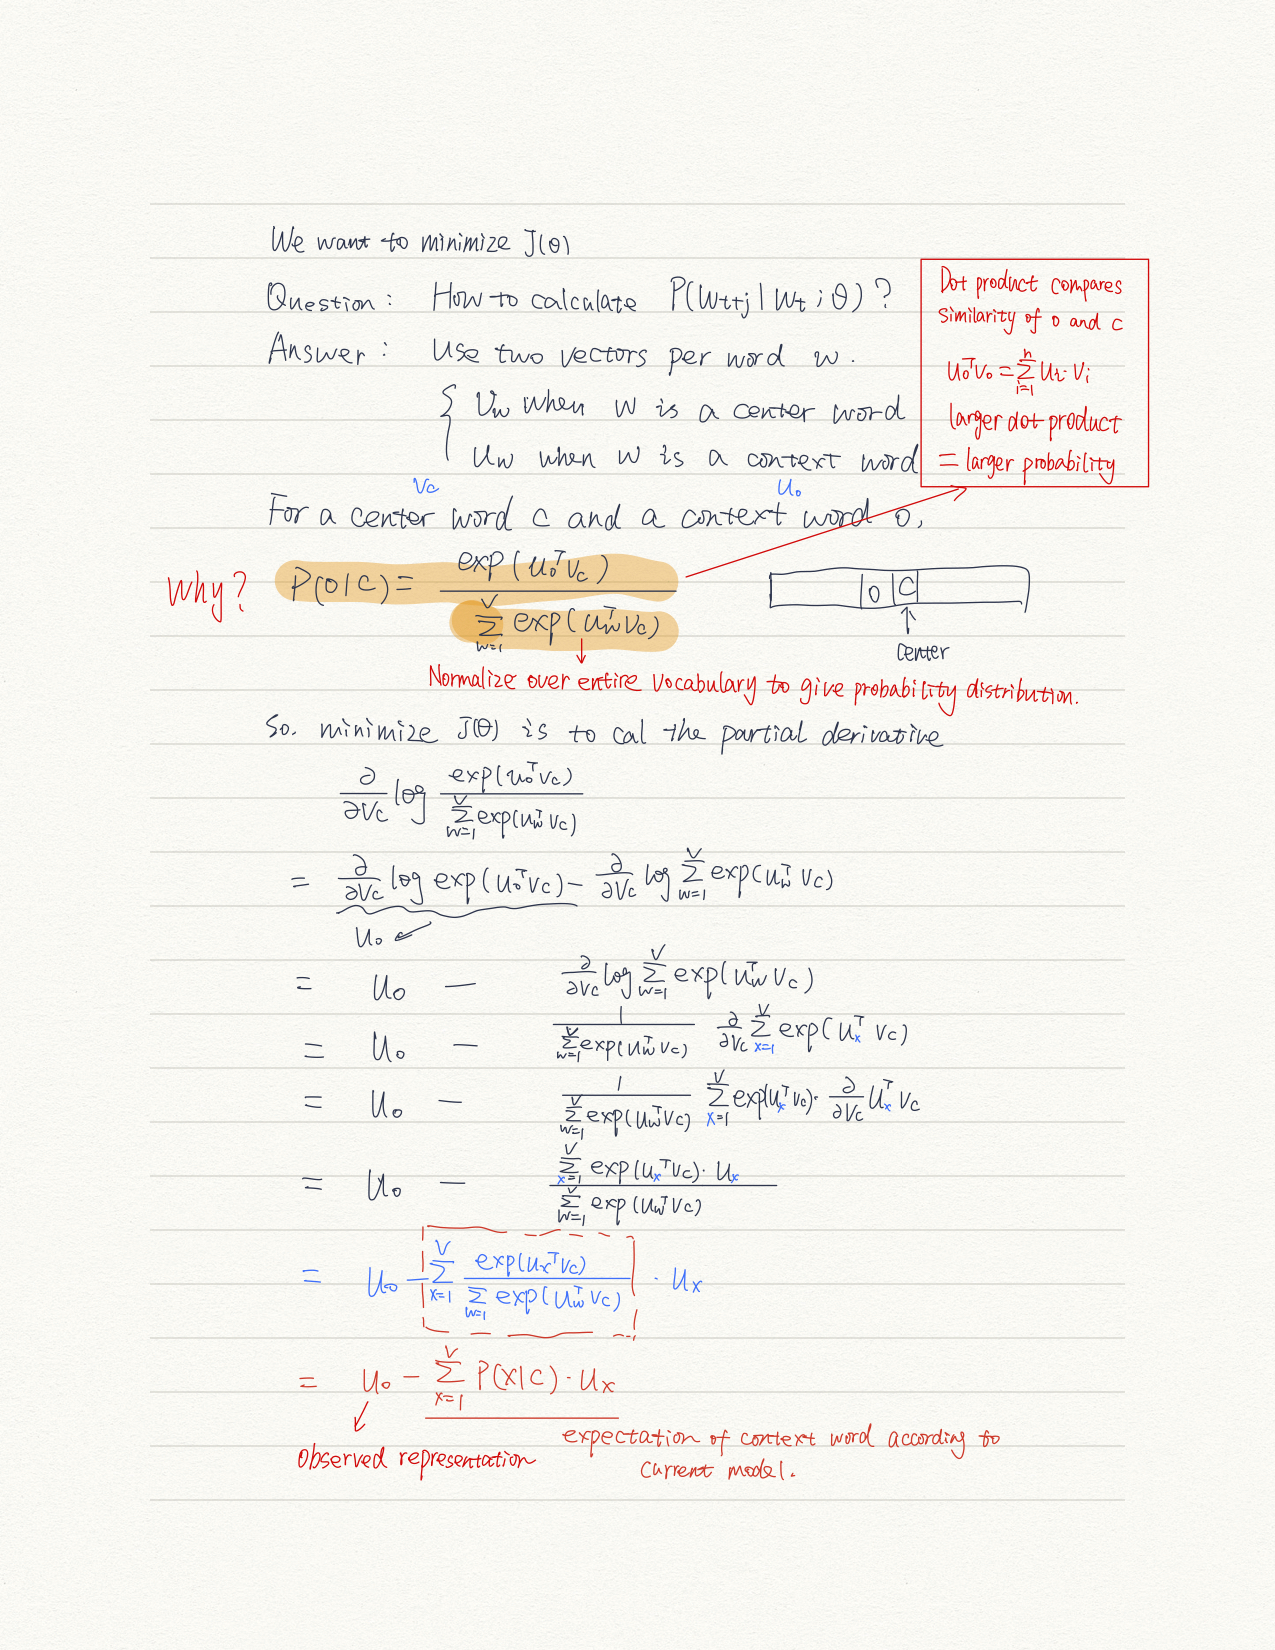 We want to minimize J(θ)
Question: How to calculate P(w_{t+j} | w_t ; θ) ?
Answer: Use two vectors per word w.
{ V_w when w is a center word
u_w when w is a context word
Dot product compares
similarity of o and c
u_o^T v_o = Σ_{i=1}^n u_i · v_i
larger dot product
= larger probability
V_c u_o
For a center word c and a context word o,
Why? P(o|c) = exp(u_o^T v_c) / Σ_{w=1}^V exp(u_w^T v_c)
o c
center
Normalize over entire vocabulary to give probability distribution.
So. minimize J(θ) is to cal the partial derivative
∂/∂v_c log exp(u_o^T v_c) / Σ_{w=1}^V exp(u_w^T v_c)
= ∂/∂v_c log exp(u_o^T v_c) − ∂/∂v_c log Σ_{w=1}^V exp(u_w^T v_c)
u_o ↙
= u_o − ∂/∂v_c log Σ_{w=1}^V exp(u_w^T v_c)
= u_o − 1 / Σ_{w=1}^V exp(u_w^T v_c) ∂/∂v_c Σ_{x=1}^V exp(u_x^T v_c)
= u_o − 1 / Σ_{w=1}^V exp(u_w^T v_c) Σ_{x=1}^V exp(u_x^T v_c) · ∂/∂v_c u_x^T v_c
= u_o − Σ_{x=1}^V exp(u_x^T v_c) · u_x / Σ_{w=1}^V exp(u_w^T v_c)
= u_o − Σ_{x=1}^V exp(u_x^T v_c) / Σ_{w=1} exp(u_w^T v_c) · u_x
= u_o − Σ_{x=1}^V P(x|c) · u_x
Observed representation
expectation of context word according to
current model.